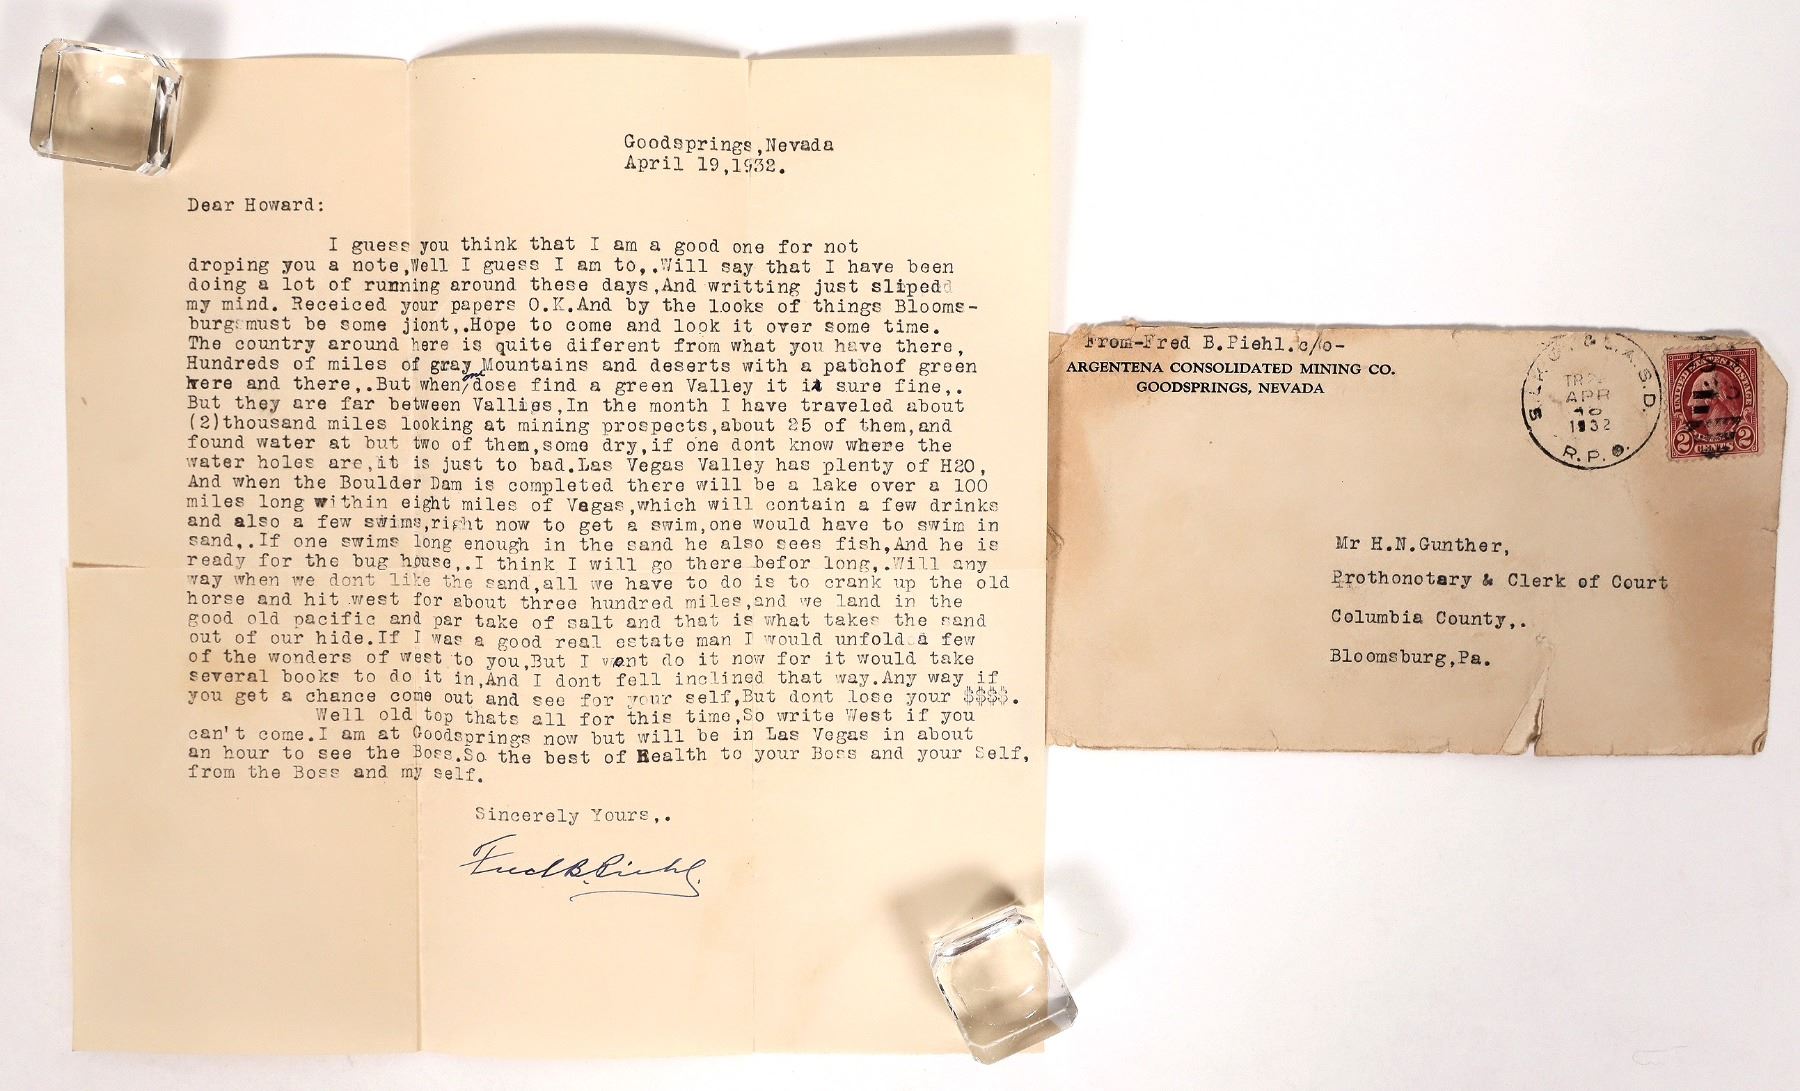 Goodsprings,Nevada
April 19,1932.
Dear Howard:
I guess you think that I am a good one for not
droping you a note,Well I guess I am to,.Will say that I have been
doing a lot of running around these days,And writting just sliped
my mind. Receiced your papers O.K.And by the looks of things Blooms-
burg must be some jiont,.Hope to come and look it over some time.
The country around here is quite diferent from what you have there,
Hundreds of miles of gray Mountains and deserts with a patchof green
here and there,.But when one dose find a green Valley it is sure fine,.
But they are far between Vallies,In the month I have traveled about
(2)thousand miles looking at mining prospects,about 25 of them,and
found water at but two of them,some dry,if one dont know where the
water holes are,it is just to bad.Las Vegas Valley has plenty of H2O,
And when the Boulder Dam is completed there will be a lake over a 100
miles long within eight miles of Vegas,which will contain a few drinks
and also a few swims,right now to get a swim,one would have to swim in
sand,.If one swims long enough in the sand he also sees fish,And he is
ready for the bug house,.I think I will go there befor long,.Will any
way when we dont like the sand,all we have to do is to crank up the old
horse and hit west for about three hundred miles,and we land in the
good old pacific and par take of salt and that is what takes the sand
out of our hide.If I was a good real estate man I would unfold a few
of the wonders of west to you,But I wont do it now for it would take
several books to do it in,And I dont fell inclined that way.Any way if
you get a chance come out and see for your self,But dont lose your $$$$.
Well old top thats all for this time,So write West if you
can't come.I am at Goodsprings now but will be in Las Vegas in about
an hour to see the Boss.So the best of Health to your Boss and your Self,
from the Boss and my self.
Sincerely Yours,.
Fred B. Piehl.
From-Fred B.Piehl.c/o-
ARGENTENA CONSOLIDATED MINING CO.
GOODSPRINGS, NEVADA
& L.A.S.D.
APR
1932
R.P.O.
UNITED STATES POSTAGE
2 CENTS 2
Mr H.N.Gunther,
Prothonotary & Clerk of Court
Columbia County,.
Bloomsburg,Pa.